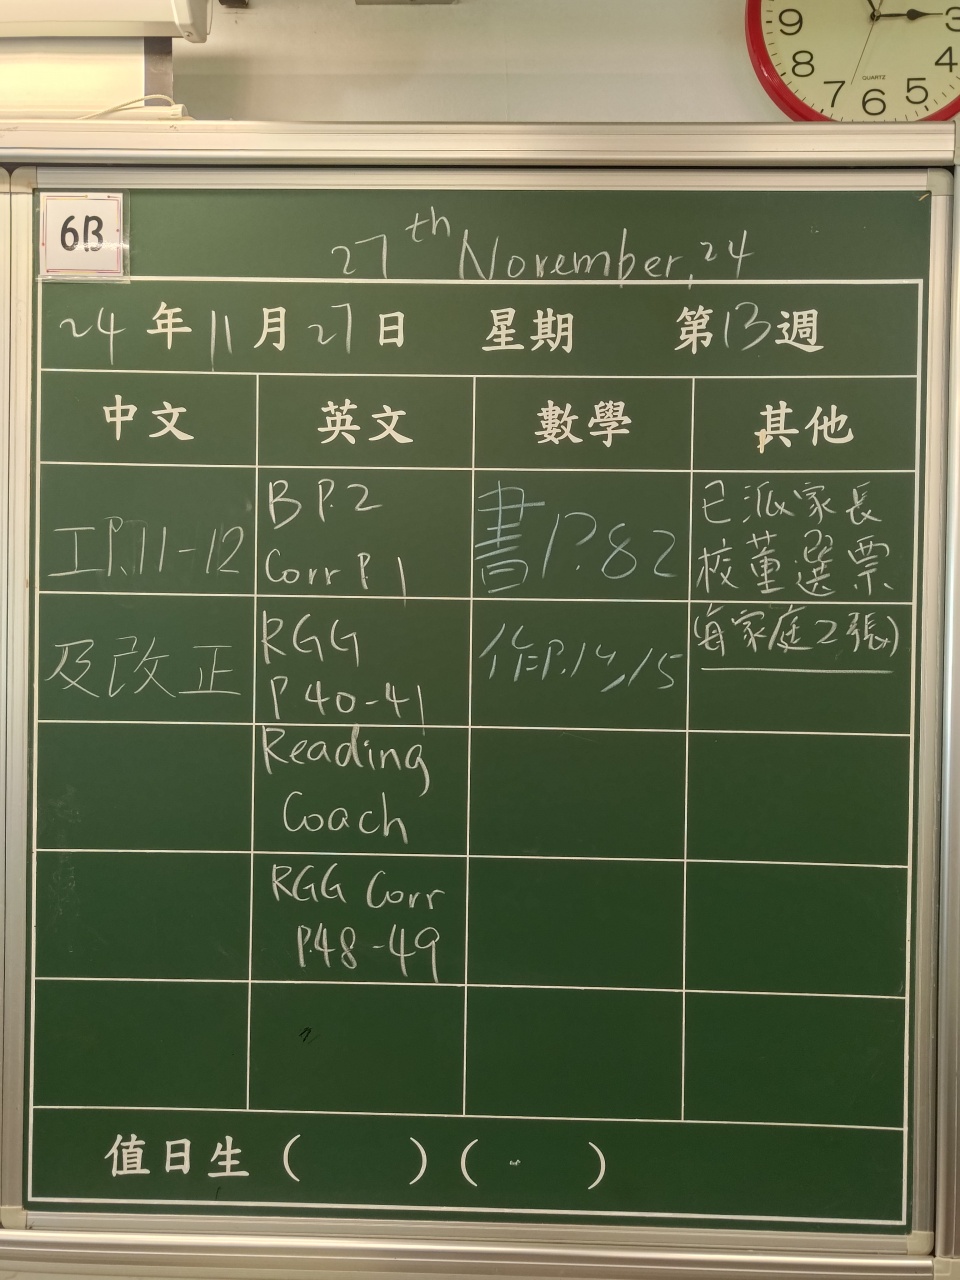 9
3
8
4
QUARTZ
7
6
5
6B
27th November, 24
24年11月27日 星期 第13週
中文 英文 數學 其他
工P.11-12
及改正
B P.2
Corr P.1
RGG
P.40-41
Reading
Coach
RGG Corr
P.48-49
書P.82
作P.14,15
已派家長
校董選票
(每家庭2張)
值日生 ( ) ( )